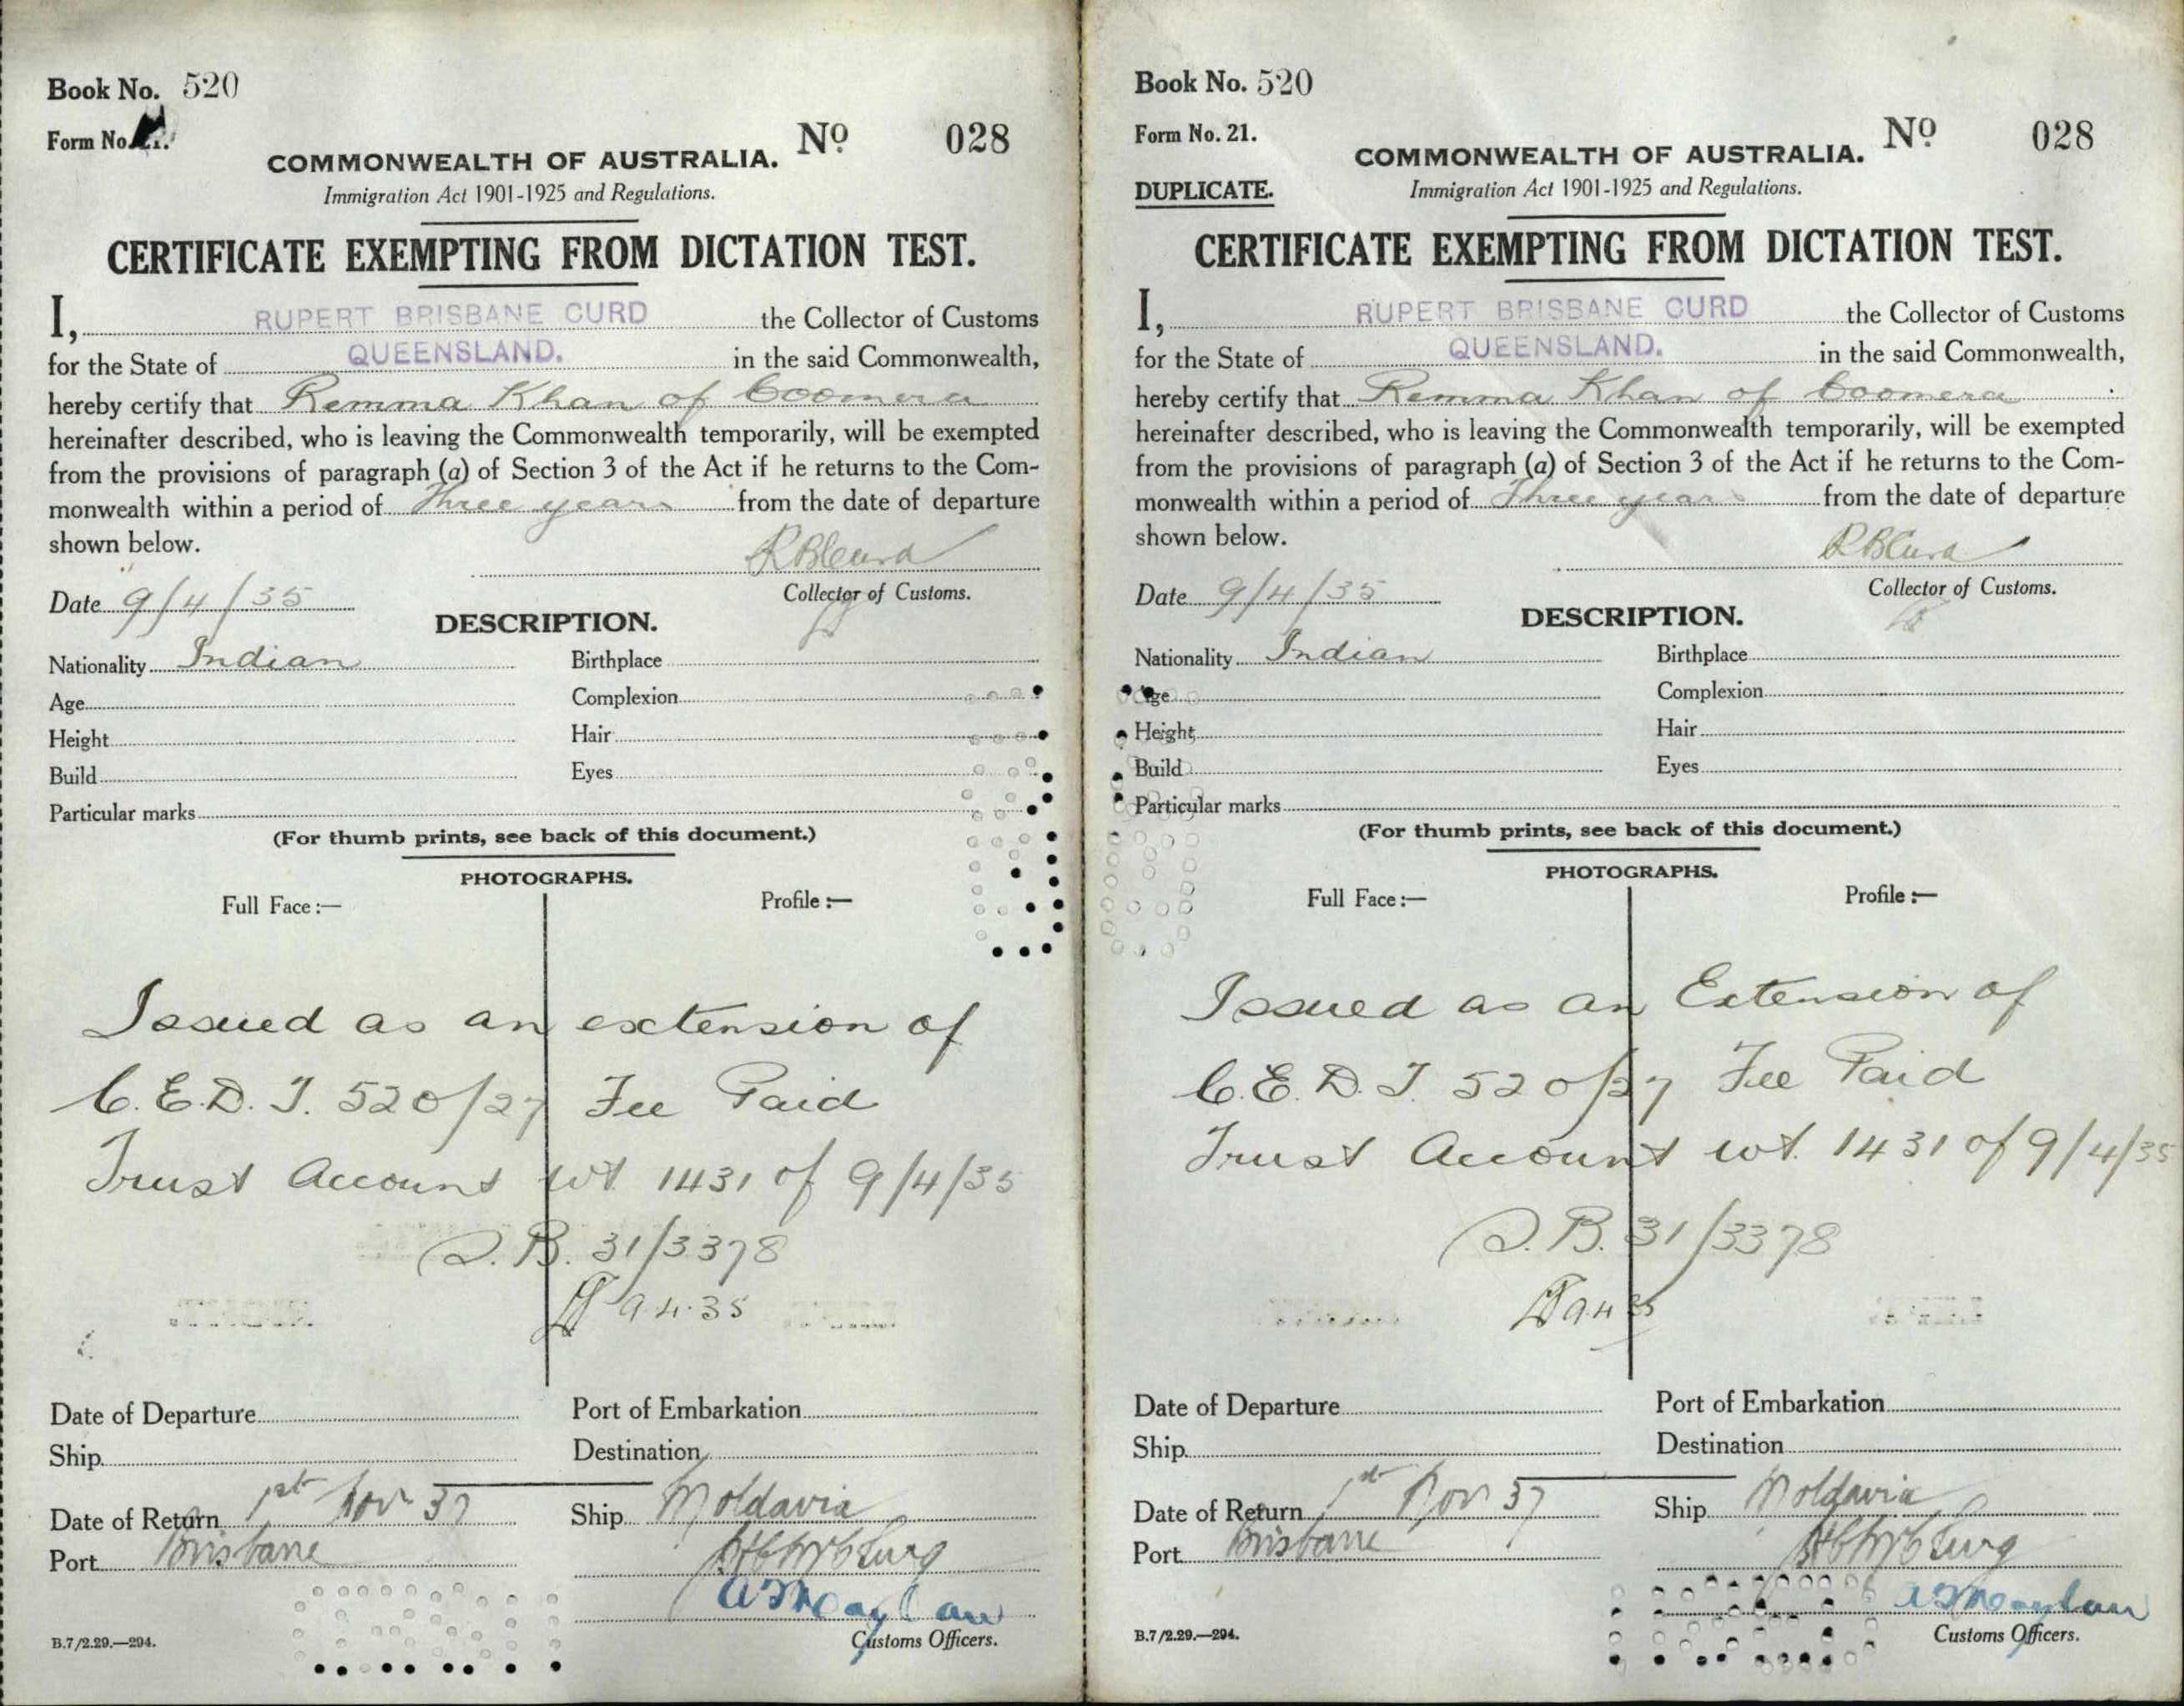 Book No. 520
Form No.
No 028
COMMONWEALTH OF AUSTRALIA.
Immigration Act 1901-1925 and Regulations.
CERTIFICATE EXEMPTING FROM DICTATION TEST.
I, RUPERT BRISBANE CURD the Collector of Customs
for the State of QUEENSLAND. in the said Commonwealth,
hereby certify that Remma Khan of Coomera
hereinafter described, who is leaving the Commonwealth temporarily, will be exempted
from the provisions of paragraph (a) of Section 3 of the Act if he returns to the Com-
monwealth within a period of Three years from the date of departure
shown below.
RBCurd
Date 9/4/35
Collector of Customs.
DESCRIPTION.
Nationality Indian Birthplace
Age Complexion
Height Hair
Build Eyes
Particular marks
(For thumb prints, see back of this document.)
PHOTOGRAPHS.
Full Face:— Profile:—
Issued as an extension of
C.E.D.T. 520/27 Fee Paid
Trust Account wt 1431 of 9/4/35
31/3378
9.4.35
Date of Departure Port of Embarkation
Ship Destination
Date of Return 1st Nov 37 Ship Moldavia
Port Brisbane
Customs Officers.
B.7/2.29.—294.
Book No. 520
Form No. 21.
No 028
COMMONWEALTH OF AUSTRALIA.
DUPLICATE.
Immigration Act 1901-1925 and Regulations.
CERTIFICATE EXEMPTING FROM DICTATION TEST.
I, RUPERT BRISBANE CURD the Collector of Customs
for the State of QUEENSLAND. in the said Commonwealth,
hereby certify that Remma Khan of Coomera
hereinafter described, who is leaving the Commonwealth temporarily, will be exempted
from the provisions of paragraph (a) of Section 3 of the Act if he returns to the Com-
monwealth within a period of Three years from the date of departure
shown below.
RBCurd
Date 9/4/35
Collector of Customs.
DESCRIPTION.
Nationality Indian Birthplace
Age Complexion
Height Hair
Build Eyes
Particular marks
(For thumb prints, see back of this document.)
PHOTOGRAPHS.
Full Face:— Profile:—
Issued as an Extension of
C.E.D.T. 520/27 Fee Paid
Trust Account wt. 1431 of 9/4/35
31/3378
9 4 35
Date of Departure Port of Embarkation
Ship Destination
Date of Return 1st Nov 37 Ship Moldavia
Port Brisbane
Customs Officers.
B.7/2.29.—294.